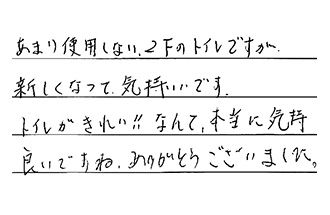 あまり使用しない、2Fのトイレですが、
新しくなって、気持いいです。
トイレがきれい!!なんて、本当に気持
良いですね、ありがとうございました。